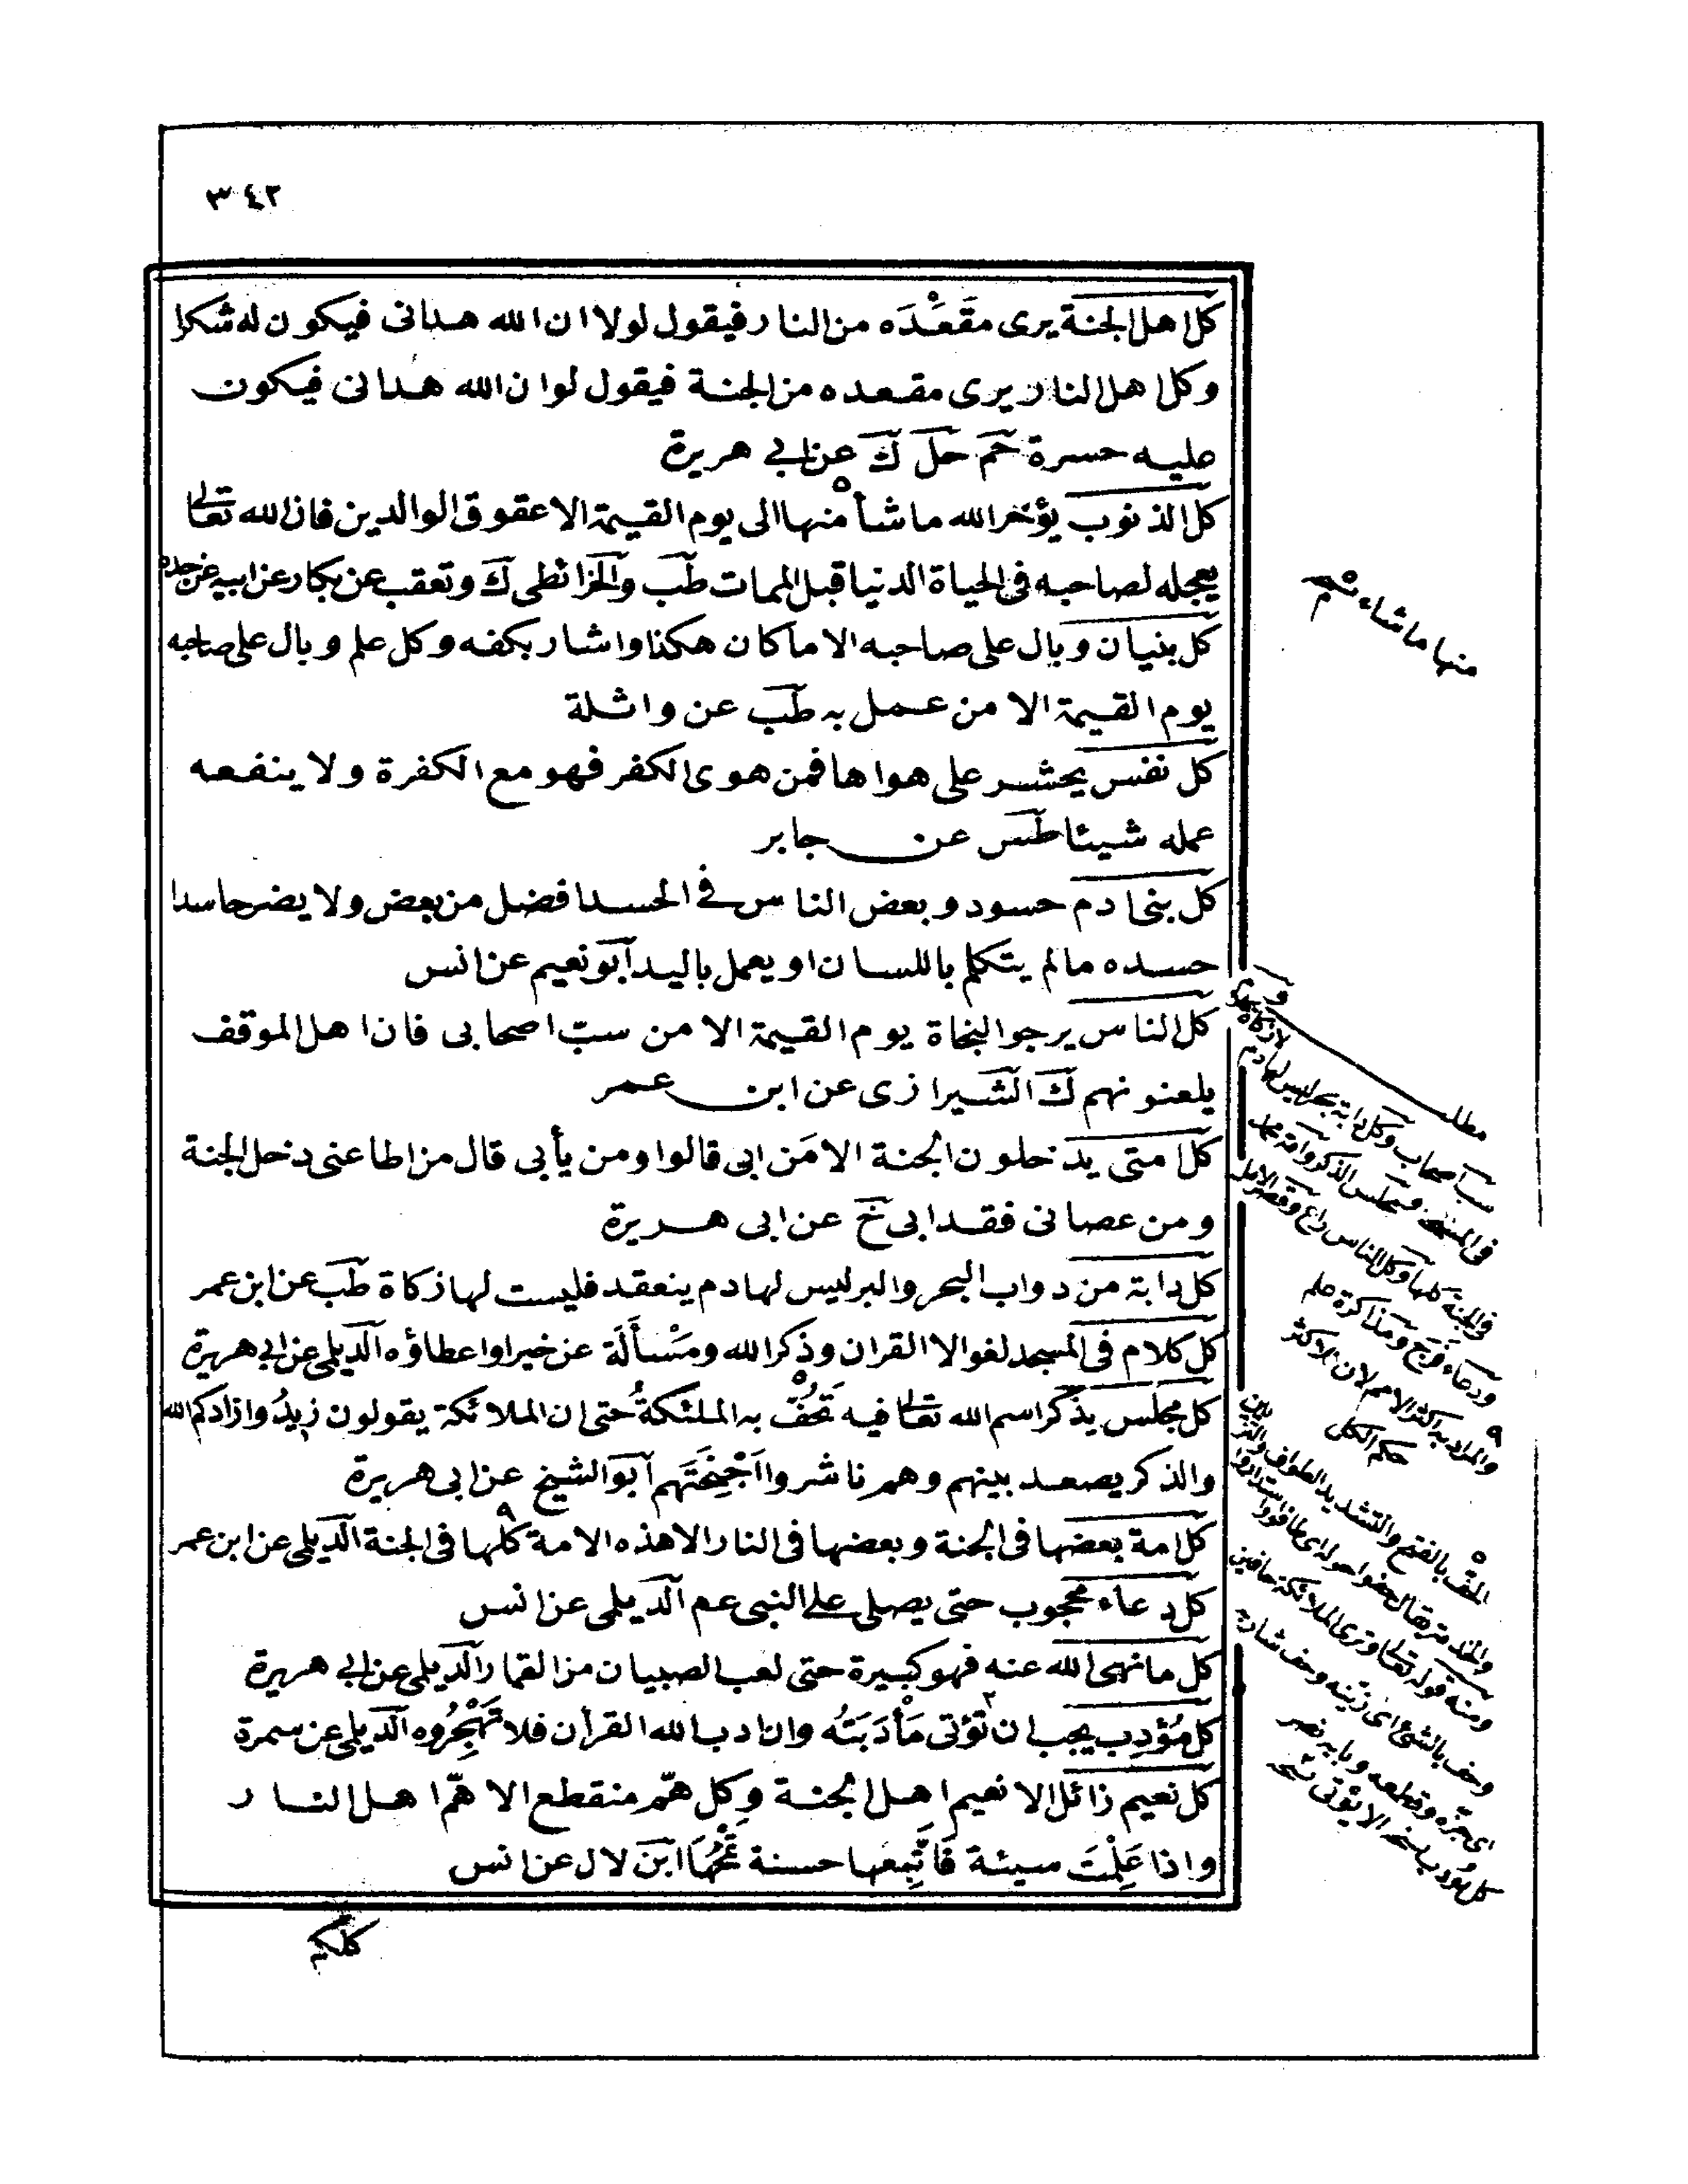 ٣٤٢
كل اهل الجنة يرى مقعده من النار فيقول لولا ان الله هدانى فيكون له شكرا
وكل اهل النار يرى مقعده من الجنة فيقول لو ان الله هدانى فيكون
عليه حسرة حم حل ك عن ابى هريرة
كل الذنوب يؤخر الله ما شأ منها الى يوم القيمة الا عقوق الوالدين فان الله تعالى
يعجله لصاحبه فى الحياة الدنيا قبل الممات طب والخرائطى ك وتعقب عن بكار عن ابيه عن جده
كل بنيان وبال على صاحبه الا ما كان هكذا واشار بكفه وكل علم وبال على صاحبه
يوم القيمة الا من عمل به طب عن واثلة
كل نفس يحشر على هواها فمن هوى الكفر فهو مع الكفرة ولا ينفعه
عمله شيئا طس عن جابر
كل بنى ادم حسود وبعض الناس فى الحسد افضل من بعض ولا يضر حاسدا
حسده مالم يتكلم باللسان او يعمل باليد ابو نعيم عن انس
كل الناس يرجو النجاة يوم القيمة الا من سب اصحابى فان اهل الموقف
يلعنونهم ك الشيرازى عن ابن عمر
كل متى يدخلون الجنة الا مَن ابى قالوا ومن يأبى قال من اطاعنى دخل الجنة
ومن عصانى فقد ابى خ عن ابى هريرة
كل دابة من دواب البحر والبر ليس لها دم ينعقد فليست لها زكاة طب عن ابن عمر
كل كلام فى المسجد لغو الا القران وذكر الله ومَسْأَلَة عن خير او اعطاؤه الديلمى عن ابى هريرة
كل مجلس يذكر اسم الله تعالى فيه تَحُفّ به الملئكةُ حتى ان الملائكة يقولون زيدُوا زادكم الله
والذكر يصعد بينهم وهم ناشروا اَجْنِحَتَهم ابو الشيخ عن ابى هريرة
كل امة بعضها فى الجنة وبعضها فى النار الا هذه الامة كلها فى الجنة الديلمى عن ابن عمر
كل دعاء محجوب حتى يصلى على النبى عم الديلمى عن انس
كل ما نهى الله عنه فهو كبيرة حتى لعب الصبيان من القمار الديلمى عن ابى هريرة
كل مُؤْدِب يحب ان تؤتى مَأْدَبَتُه وان ادب الله القرأن فلا تَهْجُرُوه الديلمى عن سمرة
كل نعيم زائل الا نعيم اهل الجنة وكل همّ منقطع الا همّ اهل النار
واذا عَمِلْتَ سيئة فَاَتْبِعها حسنة تَمْحُهَا ابن لال عن انس
كلكم
منها ما شاء نسخهم
مطلب
سب اصحاب وكل دابة بحر ليس لها دم
فى المسجد ومجلس الذكر وامة محمد
فى الجنة كلها وكل الناس
ودعاء فرج ومذاكرة علم
٩
والمراد به اكثر الامم لان للاكثر
حكم الكل
٥
الحف بالفتح والتشديد الطواف
ومنه قوله تعالى وترى الملائكة حافين
وحف بالشئ اى زينه وحف شاربه
اى جزه وقطعه وبابه نصر